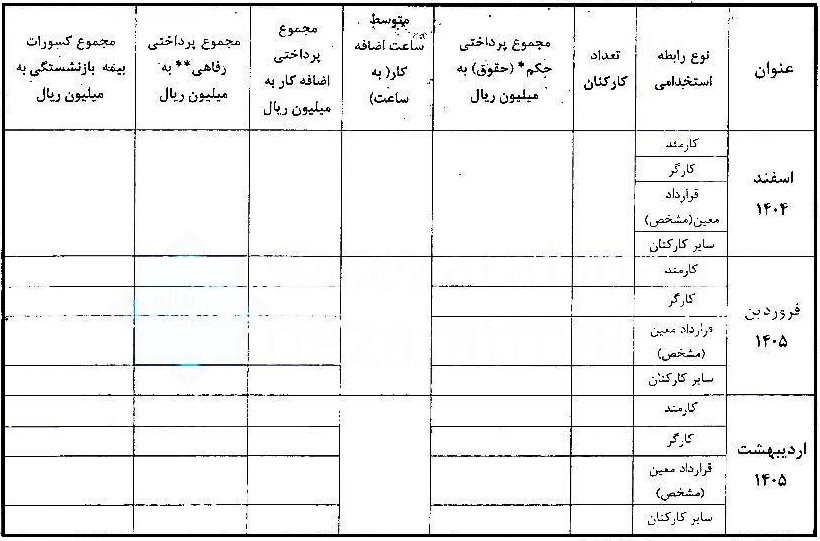 عنوان
نوع رابطه
استخدامی
تعداد
کارکنان
مجموع پرداختی
حکم* (حقوق) به
میلیون ریال
متوسط
ساعت اضافه
کار( به
ساعت)
مجموع
پرداختی
اضافه کار به
میلیون ریال
مجموع پرداختی
رفاهی** به
میلیون ریال
مجموع کسورات
بیمه بازنشستگی به
میلیون ریال
اسفند
۱۴۰۴
کارمند
کارگر
قرارداد
معین(مشخص)
سایر کارکنان
فروردین
۱۴۰۵
کارمند
کارگر
قرارداد معین
(مشخص)
سایر کارکنان
اردیبهشت
۱۴۰۵
کارمند
کارگر
قرارداد معین
(مشخص)
سایر کارکنان